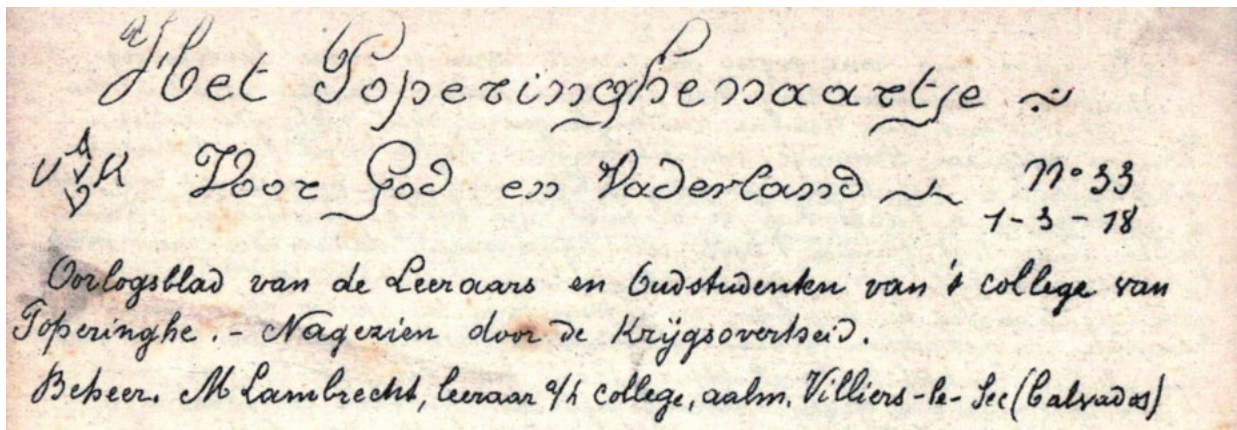 Het Poperinghenaartje
AVV VVK Voor God en Vaderland N° 33
1-3-18
Oorlogsblad van de Leeraars en Oudstudenten van 't college van
Poperinghe. - Nagezien door de Krijgsoverheid.
Beheer. M Lambrecht, leeraar a/h college, aalm. Villiers-le-Sec (Calvados)